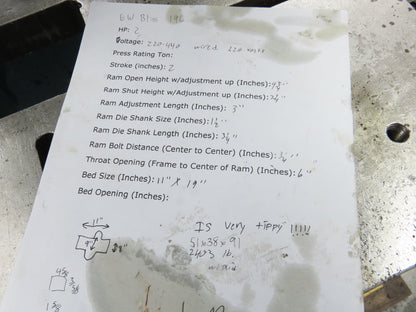 HP: 2
Voltage: 220-440 wired 220 volts
Press Rating Ton:
Stroke (inches): 2
Ram Open Height w/adjustment up (Inches):
Ram Shut Height w/Adjustment up (Inches):
Ram Adjustment Length (Inches): 3"
Ram Die Shank Size (Inches): 1½"
Ram Die Shank Length (Inches):
Ram Bolt Distance (Center to Center) (Inches):
Throat Opening (Frame to Center of Ram) (Inches): 6"
Bed Size (Inches): 11" X 19"
Bed Opening (Inches):
Is very tippy !!!!!
11"
51x38x91
lb.